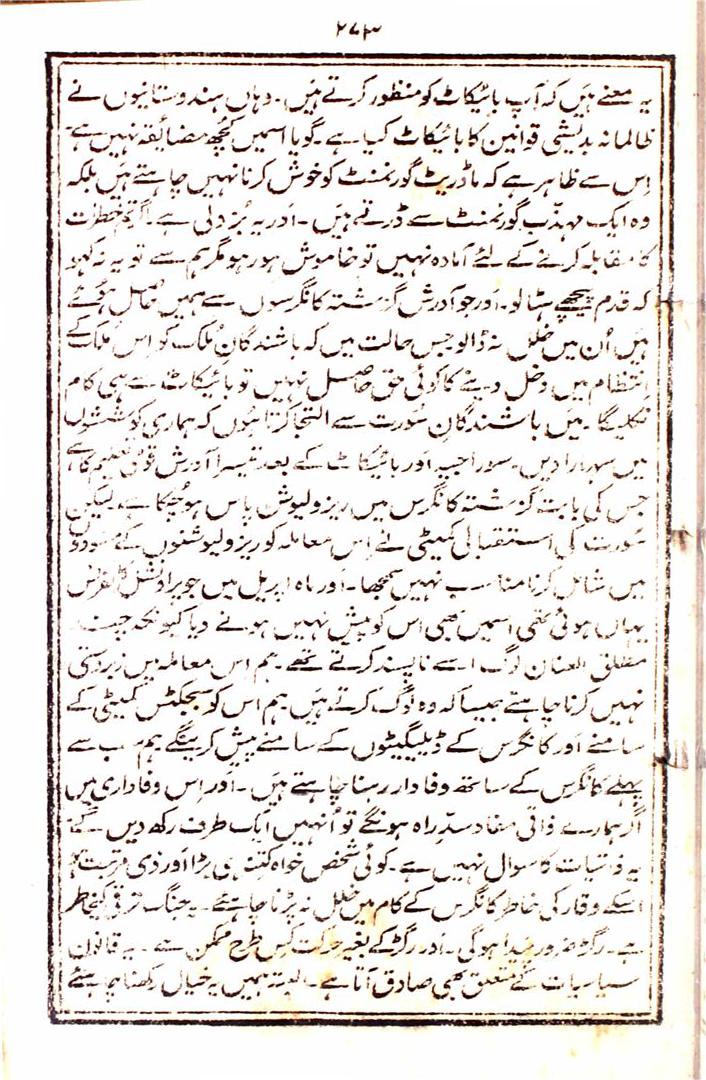 ۲۷۳
یہ معنے ہیں کہ آپ بائیکاٹ کو منظور کرتے ہیں۔ وہاں ہندوستانیوں نے
ظالمانہ بدیشی قوانین کا بائیکاٹ کیا ہے۔ گویا اسمیں کچھ مضائقہ نہیں ہے۔
اِس سے ظاہر ہے کہ ماڈریٹ گورنمنٹ کو خوش کرنا نہیں چاہتے ہیں بلکہ
وہ ایک مہذب گورنمنٹ سے ڈرتے ہیں۔ اَور یہ بُزدلی ہے۔ اگر تم خطرات
کا مقابلہ کرنے کے لئے آمادہ نہیں تو خاموش ہو رہو مگر ہم سے تو یہ نہ کہو
کہ قدم پیچھے ہٹا لو۔ اَور جو آدرش گزشتہ کانگرسوں سے ہمیں حاصل ہوئے
ہیں اُن میں خلل نہ ڈالو جس حالت میں کہ باشندگانِ ملک کو اِس ملک کے
اِنتظام میں دخل دینے کا کوئی حق حاصل نہیں تو بائیکاٹ سے ہی کام
نکلیگا۔ میں باشندگانِ سُورت سے التجا کرتا ہوں کہ ہماری کوششوں
میں سہارا دیں۔ سوراجیہ اَور بائیکاٹ کے بعد تیسرا آدرش قومی تعلیم کا ہے
جس کی بابت گزشتہ کانگرس میں ریزولیوشن پاس ہو چُکا ہے لیکن
سُورت کی استقبالی کمیٹی نے اِس معاملہ کو ریزولیوشنوں کے مسودوں
میں شامل کرنا مناسب نہیں سمجھا۔ اَور ماہ اپریل میں جو پراونشل کانفرنس
یہاں ہوئی تھی اسمیں بھی اس کو پیش نہیں ہونے دیا کیونکہ چند
مطلق العنان لوگ اسے ناپسند کرتے تھے۔ ہم اِس معاملہ میں زبردستی
نہیں کرنا چاہتے جیسا کہ وہ لوگ کرتے ہیں ہم اس کو سبجکٹس کمیٹی کے
سامنے اَور کانگرس کے ڈیلیگیٹوں کے سامنے پیش کرینگے ہم سب سے
پہلے کانگرس کے ساتھ وفادار رہنا چاہتے ہیں۔ اَور اِس وفاداری میں
اگر ہمارے ذاتی مفاد سدِّراہ ہونگے تو اُنہیں ایک طرف رکھ دیں گے
یہ ذاتیات کا سوال نہیں ہے۔ کوئی شخص خواہ کتنا ہی بڑا اَور ذی مرتبت ہو
اسکے وقار کی خاطر کانگرس کے کام میں خلل نہ پڑنا چاہئے۔ یہ جنگ ترقی کیخاطر
ہے۔ رگڑ ضرور پیدا ہوگی۔ اَور رگڑ کے بغیر حرکت کس طرح ممکن ہے۔ یہ قانون
سیاسیات کے متعلق بھی صادق آتا ہے۔ البتہ ہمیں یہ خیال رکھنا چاہئے